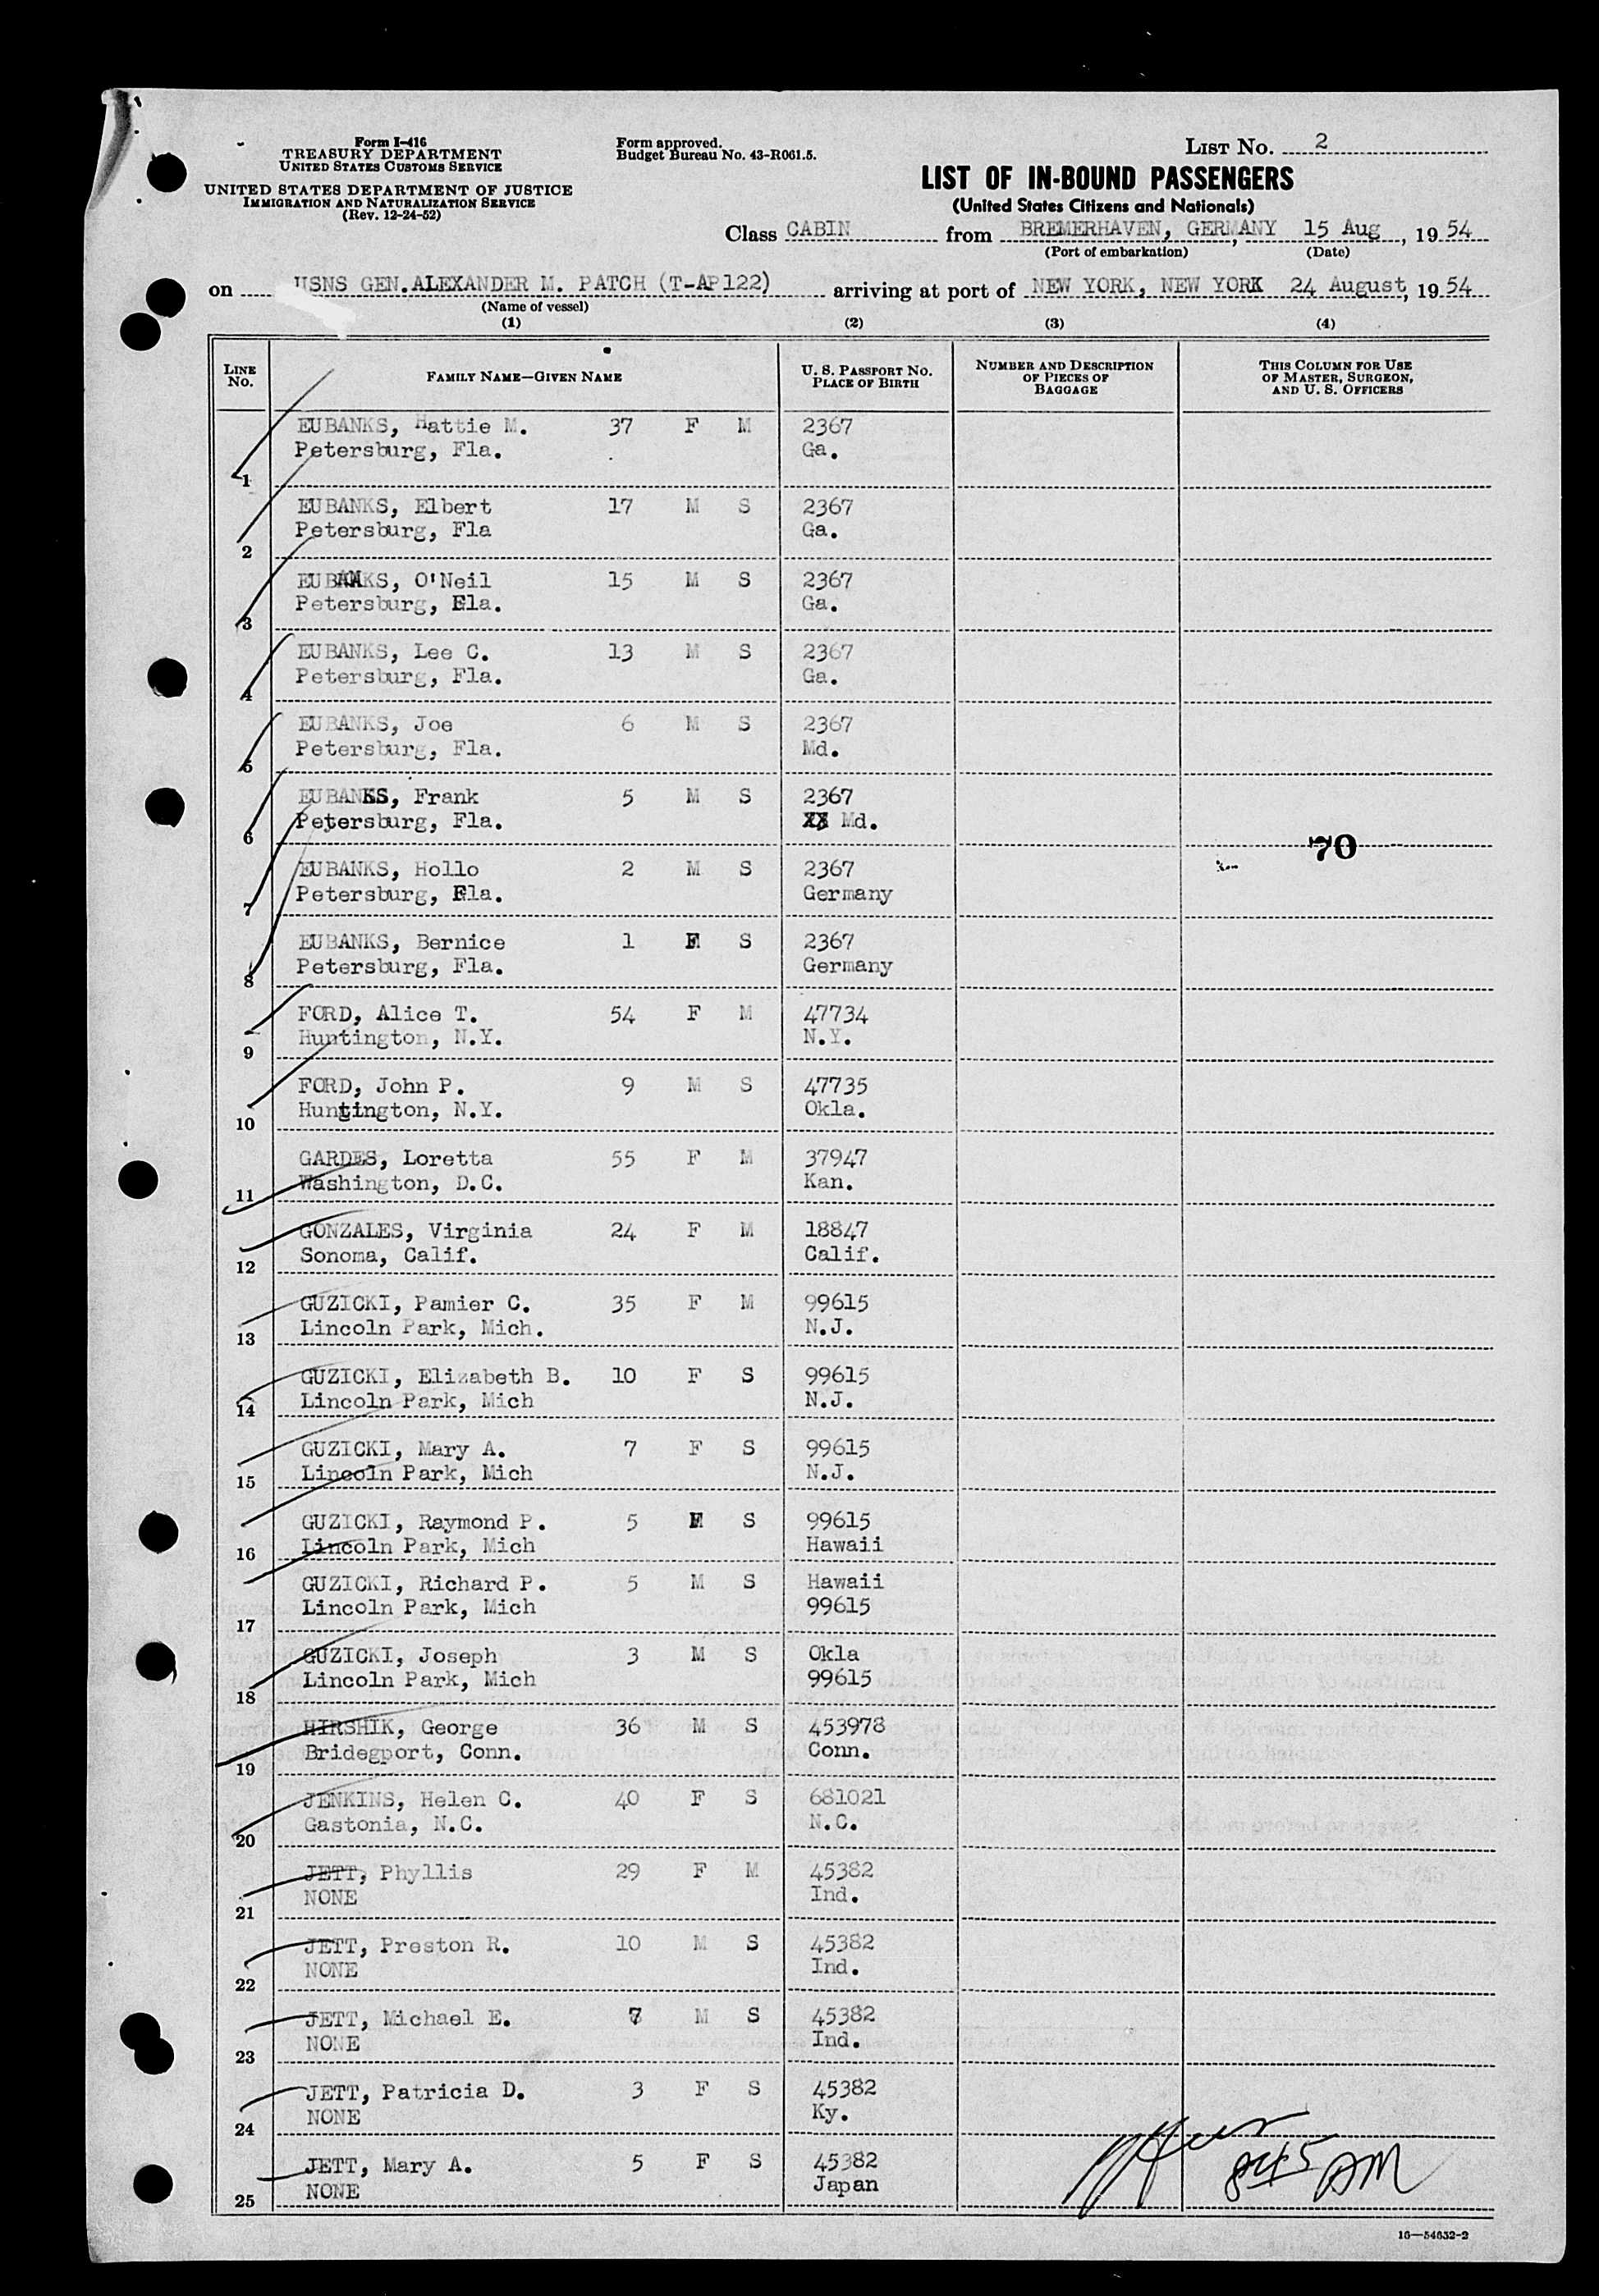 Form I-416
TREASURY DEPARTMENT
UNITED STATES CUSTOMS SERVICE
UNITED STATES DEPARTMENT OF JUSTICE
IMMIGRATION AND NATURALIZATION SERVICE
(Rev. 12-24-52)
Form approved.
Budget Bureau No. 43-R061.5.
LIST NO. 2
LIST OF IN-BOUND PASSENGERS
(United States Citizens and Nationals)
Class CABIN from BREMERHAVEN, GERMANY, 15 Aug, 1954
(Port of embarkation) (Date)
on USNS GEN.ALEXANDER M. PATCH (T-AP122) arriving at port of NEW YORK, NEW YORK 24 August, 1954
(Name of vessel)
(1) (2) (3) (4)
LINE NO. FAMILY NAME—GIVEN NAME U. S. PASSPORT NO. PLACE OF BIRTH NUMBER AND DESCRIPTION OF PIECES OF BAGGAGE THIS COLUMN FOR USE OF MASTER, SURGEON, AND U. S. OFFICERS
EUBANKS, Hattie M. 37 F M 2367
Petersburg, Fla. Ga.
1
EUBANKS, Elbert 17 M S 2367
Petersburg, Fla Ga.
2
EUBANKS, O'Neil 15 M S 2367
Petersburg, Fla. Ga.
3
EUBANKS, Lee C. 13 M S 2367
Petersburg, Fla. Ga.
4
EUBANKS, Joe 6 M S 2367
Petersburg, Fla. Md.
5
EUBANKS, Frank 5 M S 2367
Petersburg, Fla. XX Md.
6
70
EUBANKS, Hollo 2 M S 2367
Petersburg, Fla. Germany
7
EUBANKS, Bernice 1 F S 2367
Petersburg, Fla. Germany
8
FORD, Alice T. 54 F M 47734
Huntington, N.Y. N.Y.
9
FORD, John P. 9 M S 47735
Huntington, N.Y. Okla.
10
GARDES, Loretta 55 F M 37947
Washington, D.C. Kan.
11
GONZALES, Virginia 24 F M 18847
Sonoma, Calif. Calif.
12
GUZICKI, Pamier C. 35 F M 99615
Lincoln Park, Mich. N.J.
13
GUZICKI, Elizabeth B. 10 F S 99615
Lincoln Park, Mich N.J.
14
GUZICKI, Mary A. 7 F S 99615
Lincoln Park, Mich N.J.
15
GUZICKI, Raymond P. 5 M S 99615
Lincoln Park, Mich Hawaii
16
GUZICKI, Richard P. 5 M S Hawaii
Lincoln Park, Mich 99615
17
GUZICKI, Joseph 3 M S Okla
Lincoln Park, Mich 99615
18
HIRSHIK, George 36 M S 453978
Bridegport, Conn. Conn.
19
JENKINS, Helen C. 40 F S 681021
Gastonia, N.C. N.C.
20
JETT, Phyllis 29 F M 45382
NONE Ind.
21
JETT, Preston R. 10 M S 45382
NONE Ind.
22
JETT, Michael E. 7 M S 45382
NONE Ind.
23
JETT, Patricia D. 3 F S 45382
NONE Ky.
24
JETT, Mary A. 5 F S 45382
NONE Japan
25
845 AM
16—54632-2